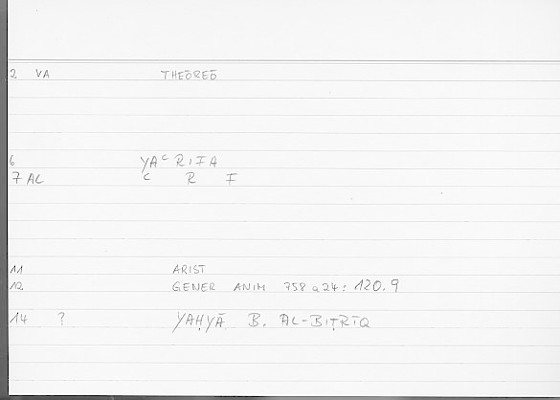 2 VA THEŌREŌ
6 YAᶜRIFA
7 AL ᶜ R F
11 ARIST
12 GENER ANIM 758 a 24: 120.9
14 ? YAḤYĀ B. AL-BIṬRĪQ